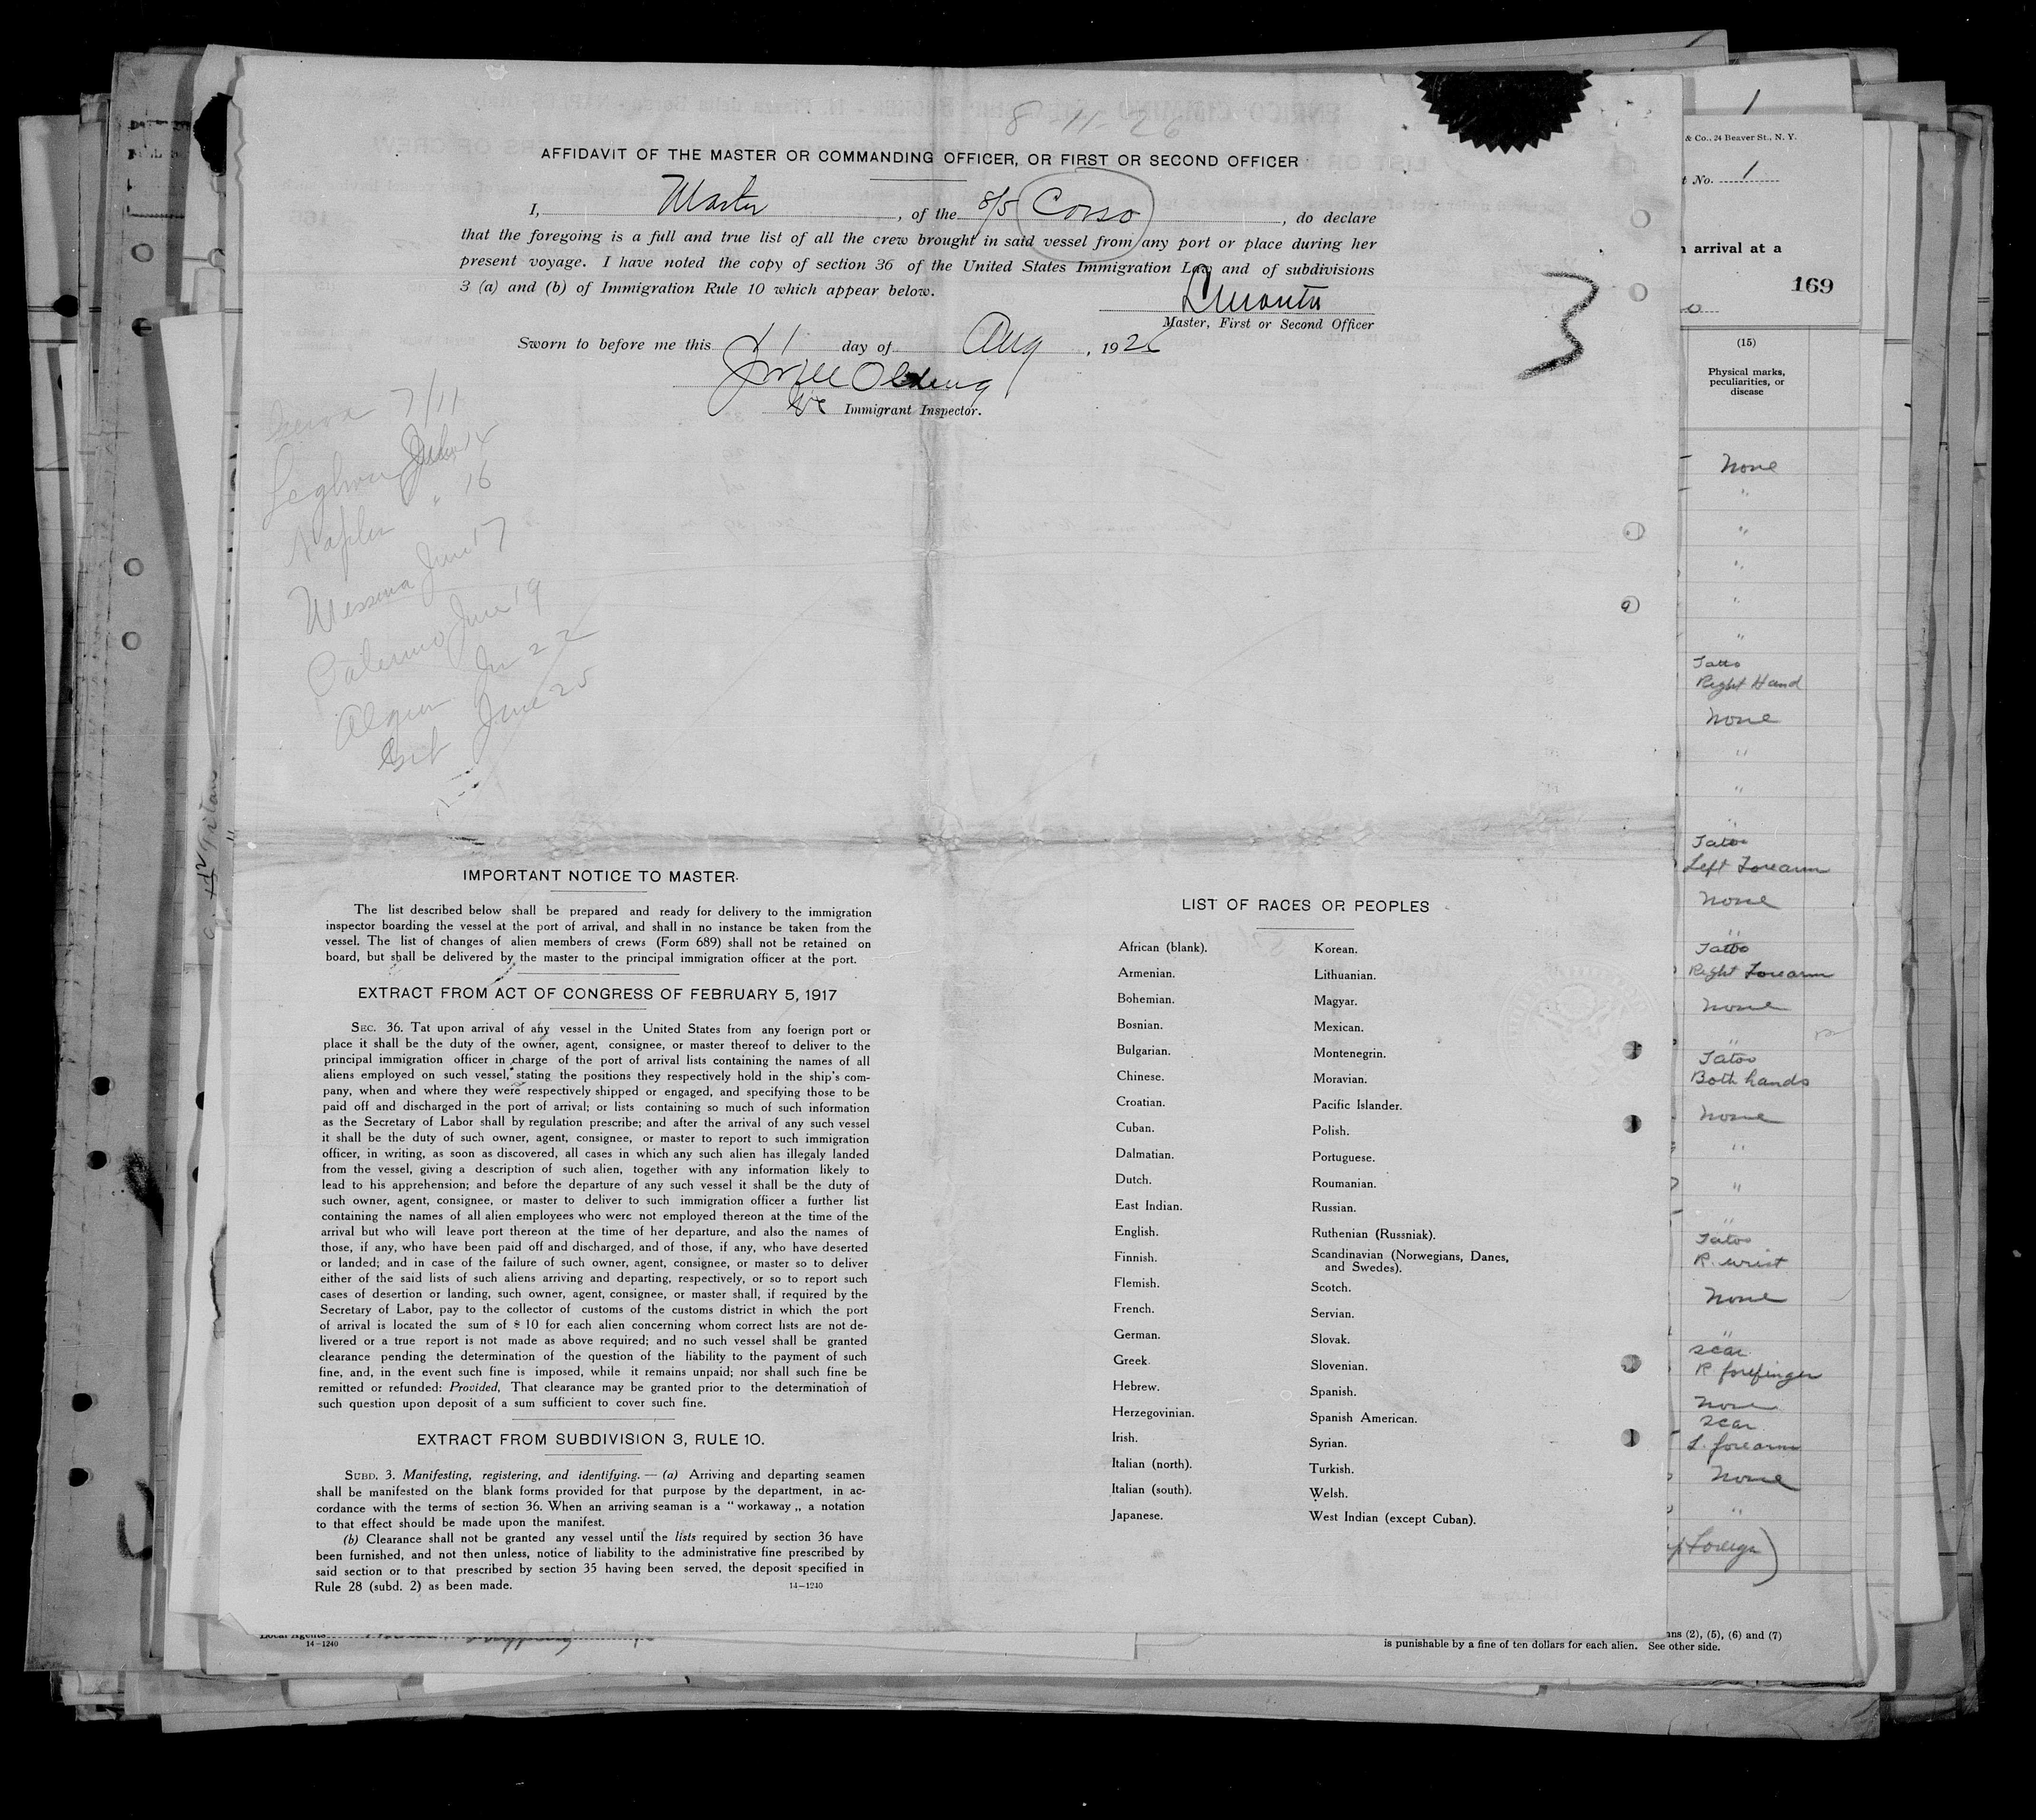 8-11-26
AFFIDAVIT OF THE MASTER OR COMMANDING OFFICER, OR FIRST OR SECOND OFFICER
I, Master, of the S/S Corso, do declare
that the foregoing is a full and true list of all the crew brought in said vessel from any port or place during her
present voyage. I have noted the copy of section 36 of the United States Immigration Law and of subdivisions
3 (a) and (b) of Immigration Rule 10 which appear below.
Master, First or Second Officer
Sworn to before me this 11 day of Aug, 1926
Immigrant Inspector.
3
7/11
Leghorn 14
Naples " 16
Messina June 17
Palermo June 19
22
Gib June 25
IMPORTANT NOTICE TO MASTER.
The list described below shall be prepared and ready for delivery to the immigration
inspector boarding the vessel at the port of arrival, and shall in no instance be taken from the
vessel. The list of changes of alien members of crews (Form 689) shall not be retained on
board, but shall be delivered by the master to the principal immigration officer at the port.
EXTRACT FROM ACT OF CONGRESS OF FEBRUARY 5, 1917
SEC. 36. Tat upon arrival of any vessel in the United States from any foerign port or
place it shall be the duty of the owner, agent, consignee, or master thereof to deliver to the
principal immigration officer in charge of the port of arrival lists containing the names of all
aliens employed on such vessel, stating the positions they respectively hold in the ship's com-
pany, when and where they were respectively shipped or engaged, and specifying those to be
paid off and discharged in the port of arrival; or lists containing so much of such information
as the Secretary of Labor shall by regulation prescribe; and after the arrival of any such vessel
it shall be the duty of such owner, agent, consignee, or master to report to such immigration
officer, in writing, as soon as discovered, all cases in which any such alien has illegaly landed
from the vessel, giving a description of such alien, together with any information likely to
lead to his apprehension; and before the departure of any such vessel it shall be the duty of
such owner, agent, consignee, or master to deliver to such immigration officer a further list
containing the names of all alien employees who were not employed thereon at the time of the
arrival but who will leave port thereon at the time of her departure, and also the names of
those, if any, who have been paid off and discharged, and of those, if any, who have deserted
or landed; and in case of the failure of such owner, agent, consignee, or master so to deliver
either of the said lists of such aliens arriving and departing, respectively, or so to report such
cases of desertion or landing, such owner, agent, consignee, or master shall, if required by the
Secretary of Labor, pay to the collector of customs of the customs district in which the port
of arrival is located the sum of $ 10 for each alien concerning whom correct lists are not de-
livered or a true report is not made as above required; and no such vessel shall be granted
clearance pending the determination of the question of the liability to the payment of such
fine, and, in the event such fine is imposed, while it remains unpaid; nor shall such fine be
remitted or refunded: Provided, That clearance may be granted prior to the determination of
such question upon deposit of a sum sufficient to cover such fine.
EXTRACT FROM SUBDIVISION 3, RULE 10.
SUBD. 3. Manifesting, registering, and identifying. — (a) Arriving and departing seamen
shall be manifested on the blank forms provided for that purpose by the department, in ac-
cordance with the terms of section 36. When an arriving seaman is a “ workaway „ a notation
to that effect should be made upon the manifest.
(b) Clearance shall not be granted any vessel until the lists required by section 36 have
been furnished, and not then unless, notice of liability to the administrative fine prescribed by
said section or to that prescribed by section 35 having been served, the deposit specified in
Rule 28 (subd. 2) as been made.
14-1240
LIST OF RACES OR PEOPLES
African (blank).
Armenian.
Bohemian.
Bosnian.
Bulgarian.
Chinese.
Croatian.
Cuban.
Dalmatian.
Dutch.
East Indian.
English.
Finnish.
Flemish.
French.
German.
Greek.
Hebrew.
Herzegovinian.
Irish.
Italian (north).
Italian (south).
Japanese.
Korean.
Lithuanian.
Magyar.
Mexican.
Montenegrin.
Moravian.
Pacific Islander.
Polish.
Portuguese.
Roumanian.
Russian.
Ruthenian (Russniak).
Scandinavian (Norwegians, Danes,
and Swedes).
Scotch.
Servian.
Slovak.
Slovenian.
Spanish.
Spanish American.
Syrian.
Turkish.
Welsh.
West Indian (except Cuban).
1
& Co., 24 Beaver St., N. Y.
No. 1
arrival at a
169
(15)
Physical marks,
peculiarities, or
disease
None
"
"
"
"
"
Tatto
Right Hand
None
"
"
"
Tatoo
Left Forearm
None
"
Tatoo
Right Forearm
None
"
Tatoo
Both hands
None
"
"
"
Tatoo
R. wrist
None
"
Scar
R forefinger
None
Scar
L. forearm
None
"
Foreign)
Local Agents
14-1240
(2), (5), (6) and (7)
is punishable by a fine of ten dollars for each alien. See other side.